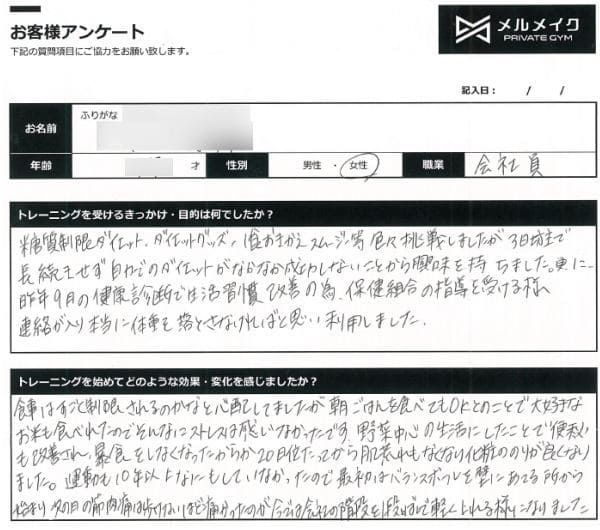 お客様アンケート
下記の質問項目にご協力をお願い致します。
メルメイク
PRIVATE GYM
記入日： / /
ふりがな
お名前
年齢 才 性別 男性 ・ 女性 職業 会社員
トレーニングを受けるきっかけ・目的は何でしたか？
糖質制限ダイエット、ダイエットグッズ、置きかえスムージー等色々挑戦しましたが3日坊主で
長続きせず自力でのダイエットがなかなか成功しないことから興味を持ちました。更に…
昨年9月の健康診断では活習慣改善の為、保健組合の指導を受ける様
連絡が入り本当に体重を落とさなければと思い利用しました。
トレーニングを始めてどのような効果・変化を感じましたか？
食事はすごく制限されるのかなと心配してましたが朝ごはんを食べてもOKとのことで大好きな
お米も食べれたのでそんなにストレスは感じなかったです。野菜中心の生活にしたことで便秘
も改善され、暴食をしなくなったからか20日位たってから肌荒れもなくなり化粧ののりが良くなり
ました。運動も10年以上なにもしていなかったので最初はバランスボールを壁にあてる所から
始まり次の日の筋肉痛は歩けないほど痛かったのが今では会社の階段を1段ばしで軽く上れる様になりました